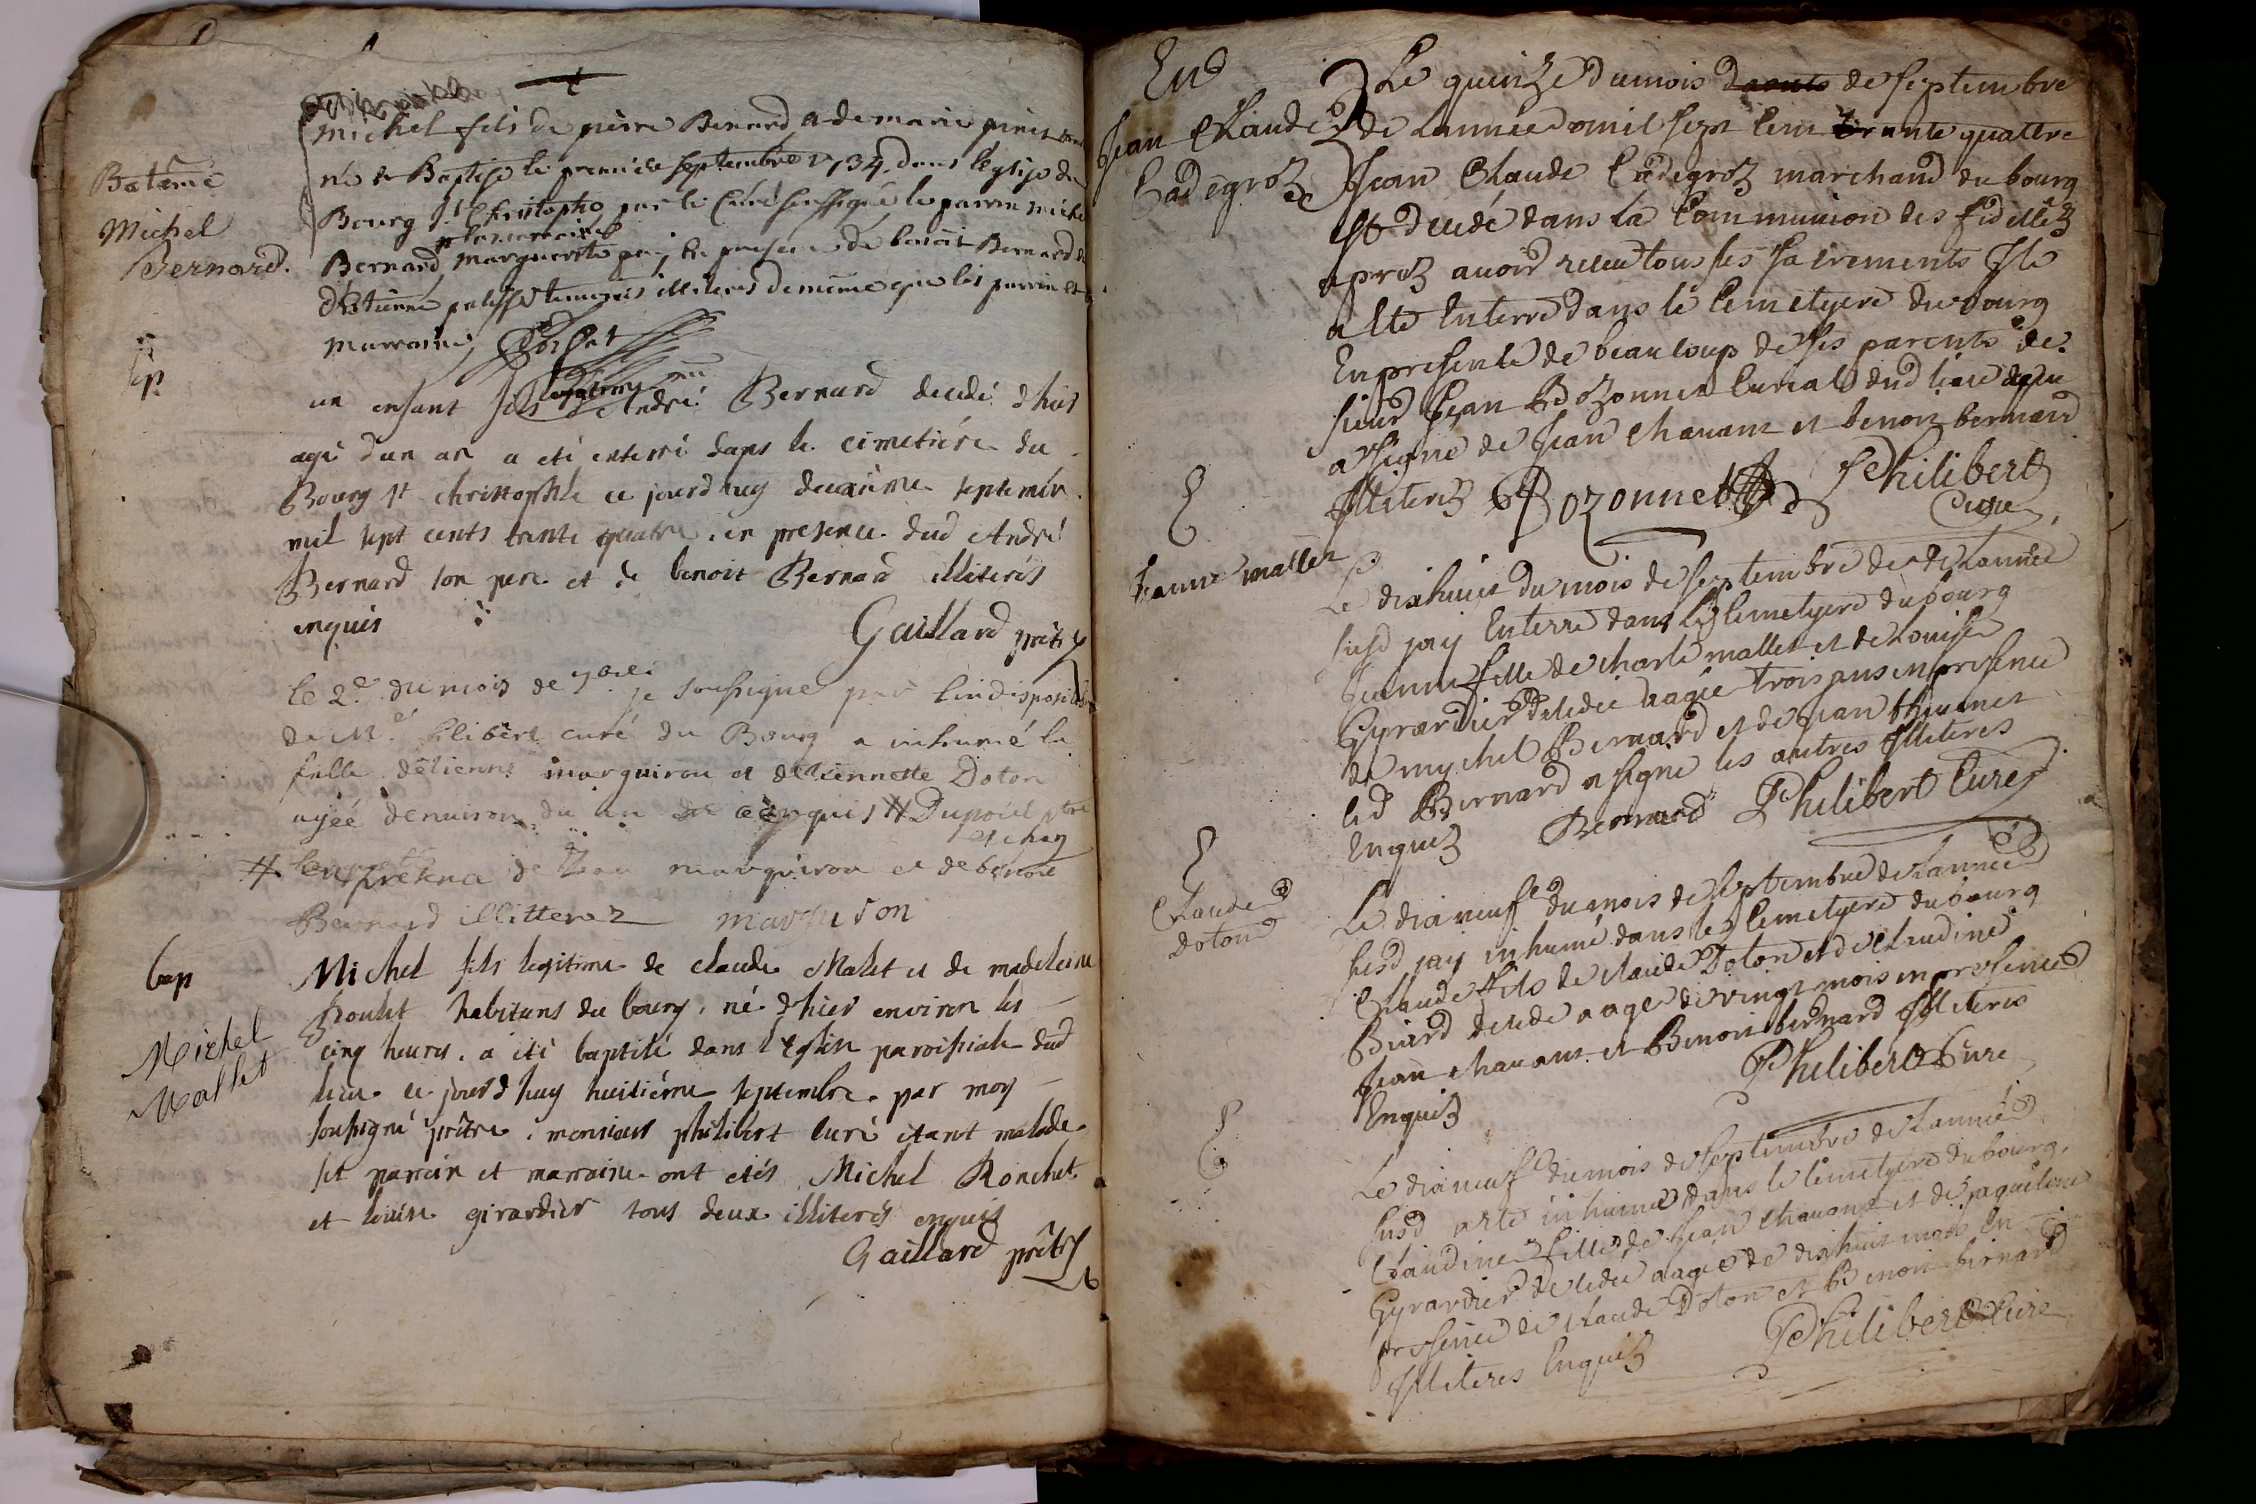 Batême
Michel
Bernard.
michel fils de pierre Bernard & de marie
né & Baptisé le premier septembre 1734. dans leglise du
Bourg st Christophe par le Curé soussigné le parrin michel
la marraine
Bernard, marguerite en presence de benoit Bernard
d'Etienne temoins illiteres de meme que les parrin et
marraine
sep.
un enfant fils d'André Bernard decedé d'hier
agé d'un an a eté enterré dans le cimetiére du
Bourg st christophle ce jourd'huy deuxiéme septembre
mil sept cents trente quatre, en presence dud André
Bernard son pere et de benoit Bernard illiterés
enquis
Gaillard prêtre
le 2e du mois de 7bre je soussigné par l'indisposition
de Mr philibert curé du Bourg a inhumé la
fille d'étienne marquiron et d'etiennette Doton
agée d'environ un an enquis # Dupoid ptre
# en presence de marquiron et de benoit
Bernard illitterez marquiron
bap
Michel
Mallet
Michel fils legitime de claude Malet et de madeleine
habitans du bourg, né d'hier environ les
cinq heures, a eté baptisé dans l'Eglise paroissiale dud
lieu ce jourd'huy huitiéme septembre par moy
soussigné prêtre, monsieur philibert curé etant malade
set parrain et marraine ont etés Michel Ronchet
et louise girardier tous deux illiterés enquis
Gaillard prêtre
End
Jean Claude
Cadegroz
Le quinze du mois de septembre
de Lannée mil sept cent trante quattre
Jean Claude Cadegroz marchand du bourg
est decedé dans la Communion des fidelles
aprez avoir receu tous ses sacrements Il
a eté Enterré dans le Cemetyere du bourg
En presence de beaucoup de ses parents de
sieur Jean Bozonnet Curial dud lieu
a signé de Jean chavant et benoit bernard
Illiterez Bozonnet Philibert
Cure
E
Jeanne mallet
Le dixhuict du mois de septembre de Lannée
susd jay Enterré dans le Cemetyere du bourg
Jeanne fille de charle mallet et de Louise
Gyrardier decedée aagée trois ans en presence
de mychel Bernard et de Jean
led Bernard a signé les autres Illiteres
Enquis Bernard Philibert Cure
E
Claude
Doton
Le dixneuf du mois de septembre de Lannée
susd jay inhumé dans le Cemetyere du bourg
Claude fils de claude Doton et de claudine
Biard decedé aagé de vingt mois en presence
Jean chavant et Benoit bernard Illiteres
Enquis Philibert Cure
E
Le dixneuf du mois de septembre de Lannée
susd a eté inhumée dans le Cemetyere du bourg
Claudine fille de Jean chavant et de jaqueline
Gyrardier decedée aagée de dixhuit mois en
presence de claude Doton et Benoit bernard
Illiteres Enquis Philibert Cure